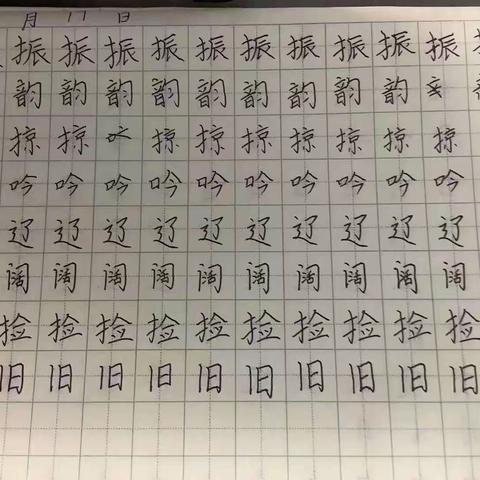 月 17 日
振 振 振 振 振 振 振 振 振 振
韵 韵 韵 韵 韵 韵 韵 韵 韵
掠 掠 掠 掠 掠 掠 掠 掠 掠
吟 吟 吟 吟 吟 吟 吟 吟 吟 吟
辽 辽 辽 辽 辽 辽 辽 辽 辽 辽
阔 阔 阔 阔 阔 阔 阔 阔 阔 阔
捡 捡 捡 捡 捡 捡 捡 捡 捡 捡
旧 旧 旧 旧 旧 旧 旧 旧 旧 旧